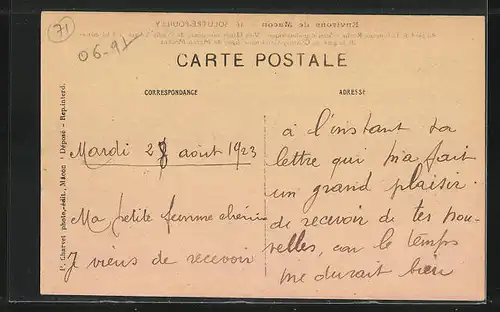 71
06-91
CARTE POSTALE
CORRESPONDANCE
ADRESSE
Mardi 28 août 1923
Ma petite femme chérie
Je viens de recevoir
à l'instant ta
lettre qui m'a fait
un grand plaisir.
de recevoir de tes nou-
velles, car le temps
me durait bien
P. Charvet photo.-édit., Mâcon - Déposé - Rep. interd.
Environs de Macon
SOLUTRÉ-POUILLY